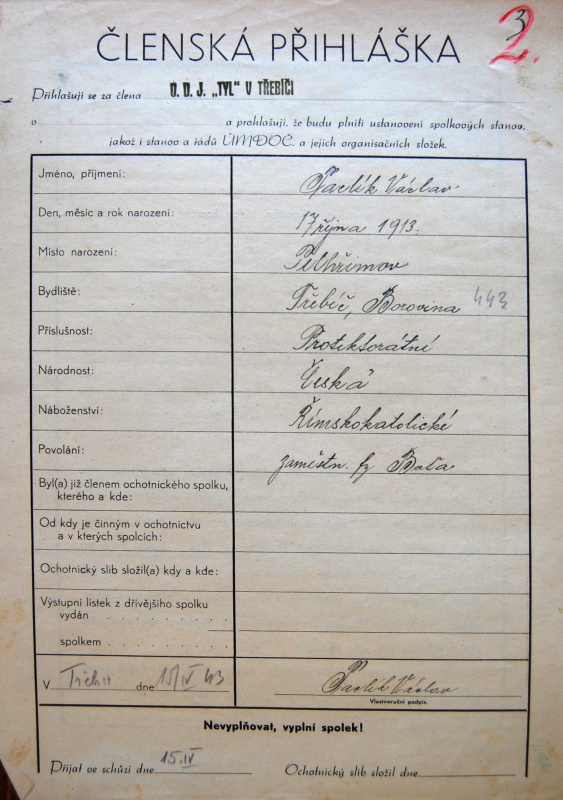 3
2.
ČLENSKÁ PŘIHLÁŠKA
Přihlašuji se za člena O. D. J. „TYL" V TŘEBÍČI
v a prohlašuji, že budu plniti ustanovení spolkových stanov,
jakož i stanov a řádů ÚMDOČ. a jejich organisačních složek.
Jméno, příjmení: Pavlík Václav
Den, měsíc a rok narození: 17 října 1913.
Místo narození: Pelhřimov
Bydliště: Třebíč, Borovina 443
Příslušnost: Protektorátní
Národnost: Česká
Náboženství: Římskokatolické
Povolání: zaměstn. fy Baťa
Byl(a) již členem ochotnického spolku,
kterého a kde:
Od kdy je činným v ochotnictvu
a v kterých spolcích:
Ochotnický slib složil(a) kdy a kde:
Výstupní lístek z dřívějšího spolku
vydán . . . . . . . . .
spolkem . . . . . . . .
V Třebíči dne 15/IV 43 Pavlík Václav
Vlastnoruční podpis.
Nevyplňovat, vyplní spolek!
Přijat ve schůzi dne 15.IV Ochotnický slib složil dne